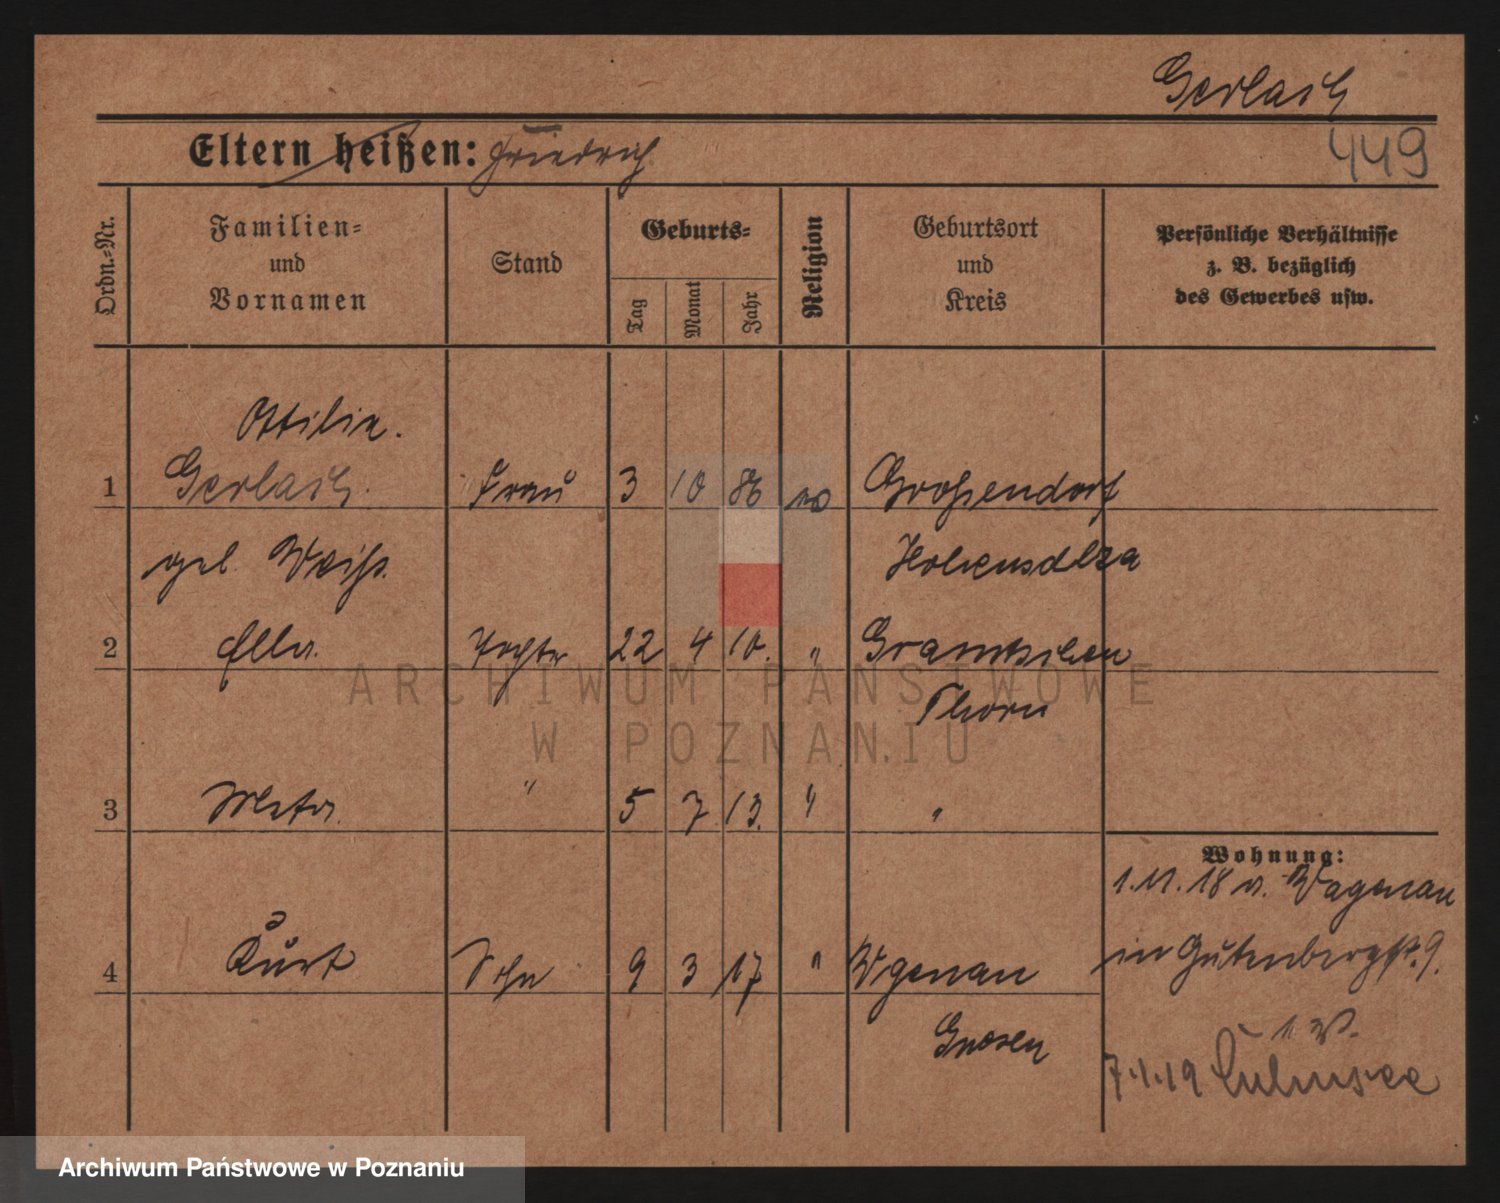 Gerlach
449
Eltern heißen: Friedrich
Ordn.-Nr.
Familien-
und
Vornamen
Stand
Geburts-
Tag
Monat
Jahr
Religion
Geburtsort
und
Kreis
Persönliche Verhältnisse
z. B. bezüglich
des Gewerbes usw.
Ottilie.
1 Gerlach Frau 3 10 86 Großendorf
geb. Weiß. Hohensalza
2 Ella. Tochter 22 4 10. " Gramtschen
Thorn
3 Meta. " 5 7 13. " "
Wohnung:
1.11.18 v. Wagenau
4 Kurt Sohn 9 3 17 " Wgenau
in Gutenbergst. 9.
Gnesen
7.1.19 Culmsee
ARCHIWUM PAŃSTWOWE
W POZNANIU
Archiwum Państwowe w Poznaniu